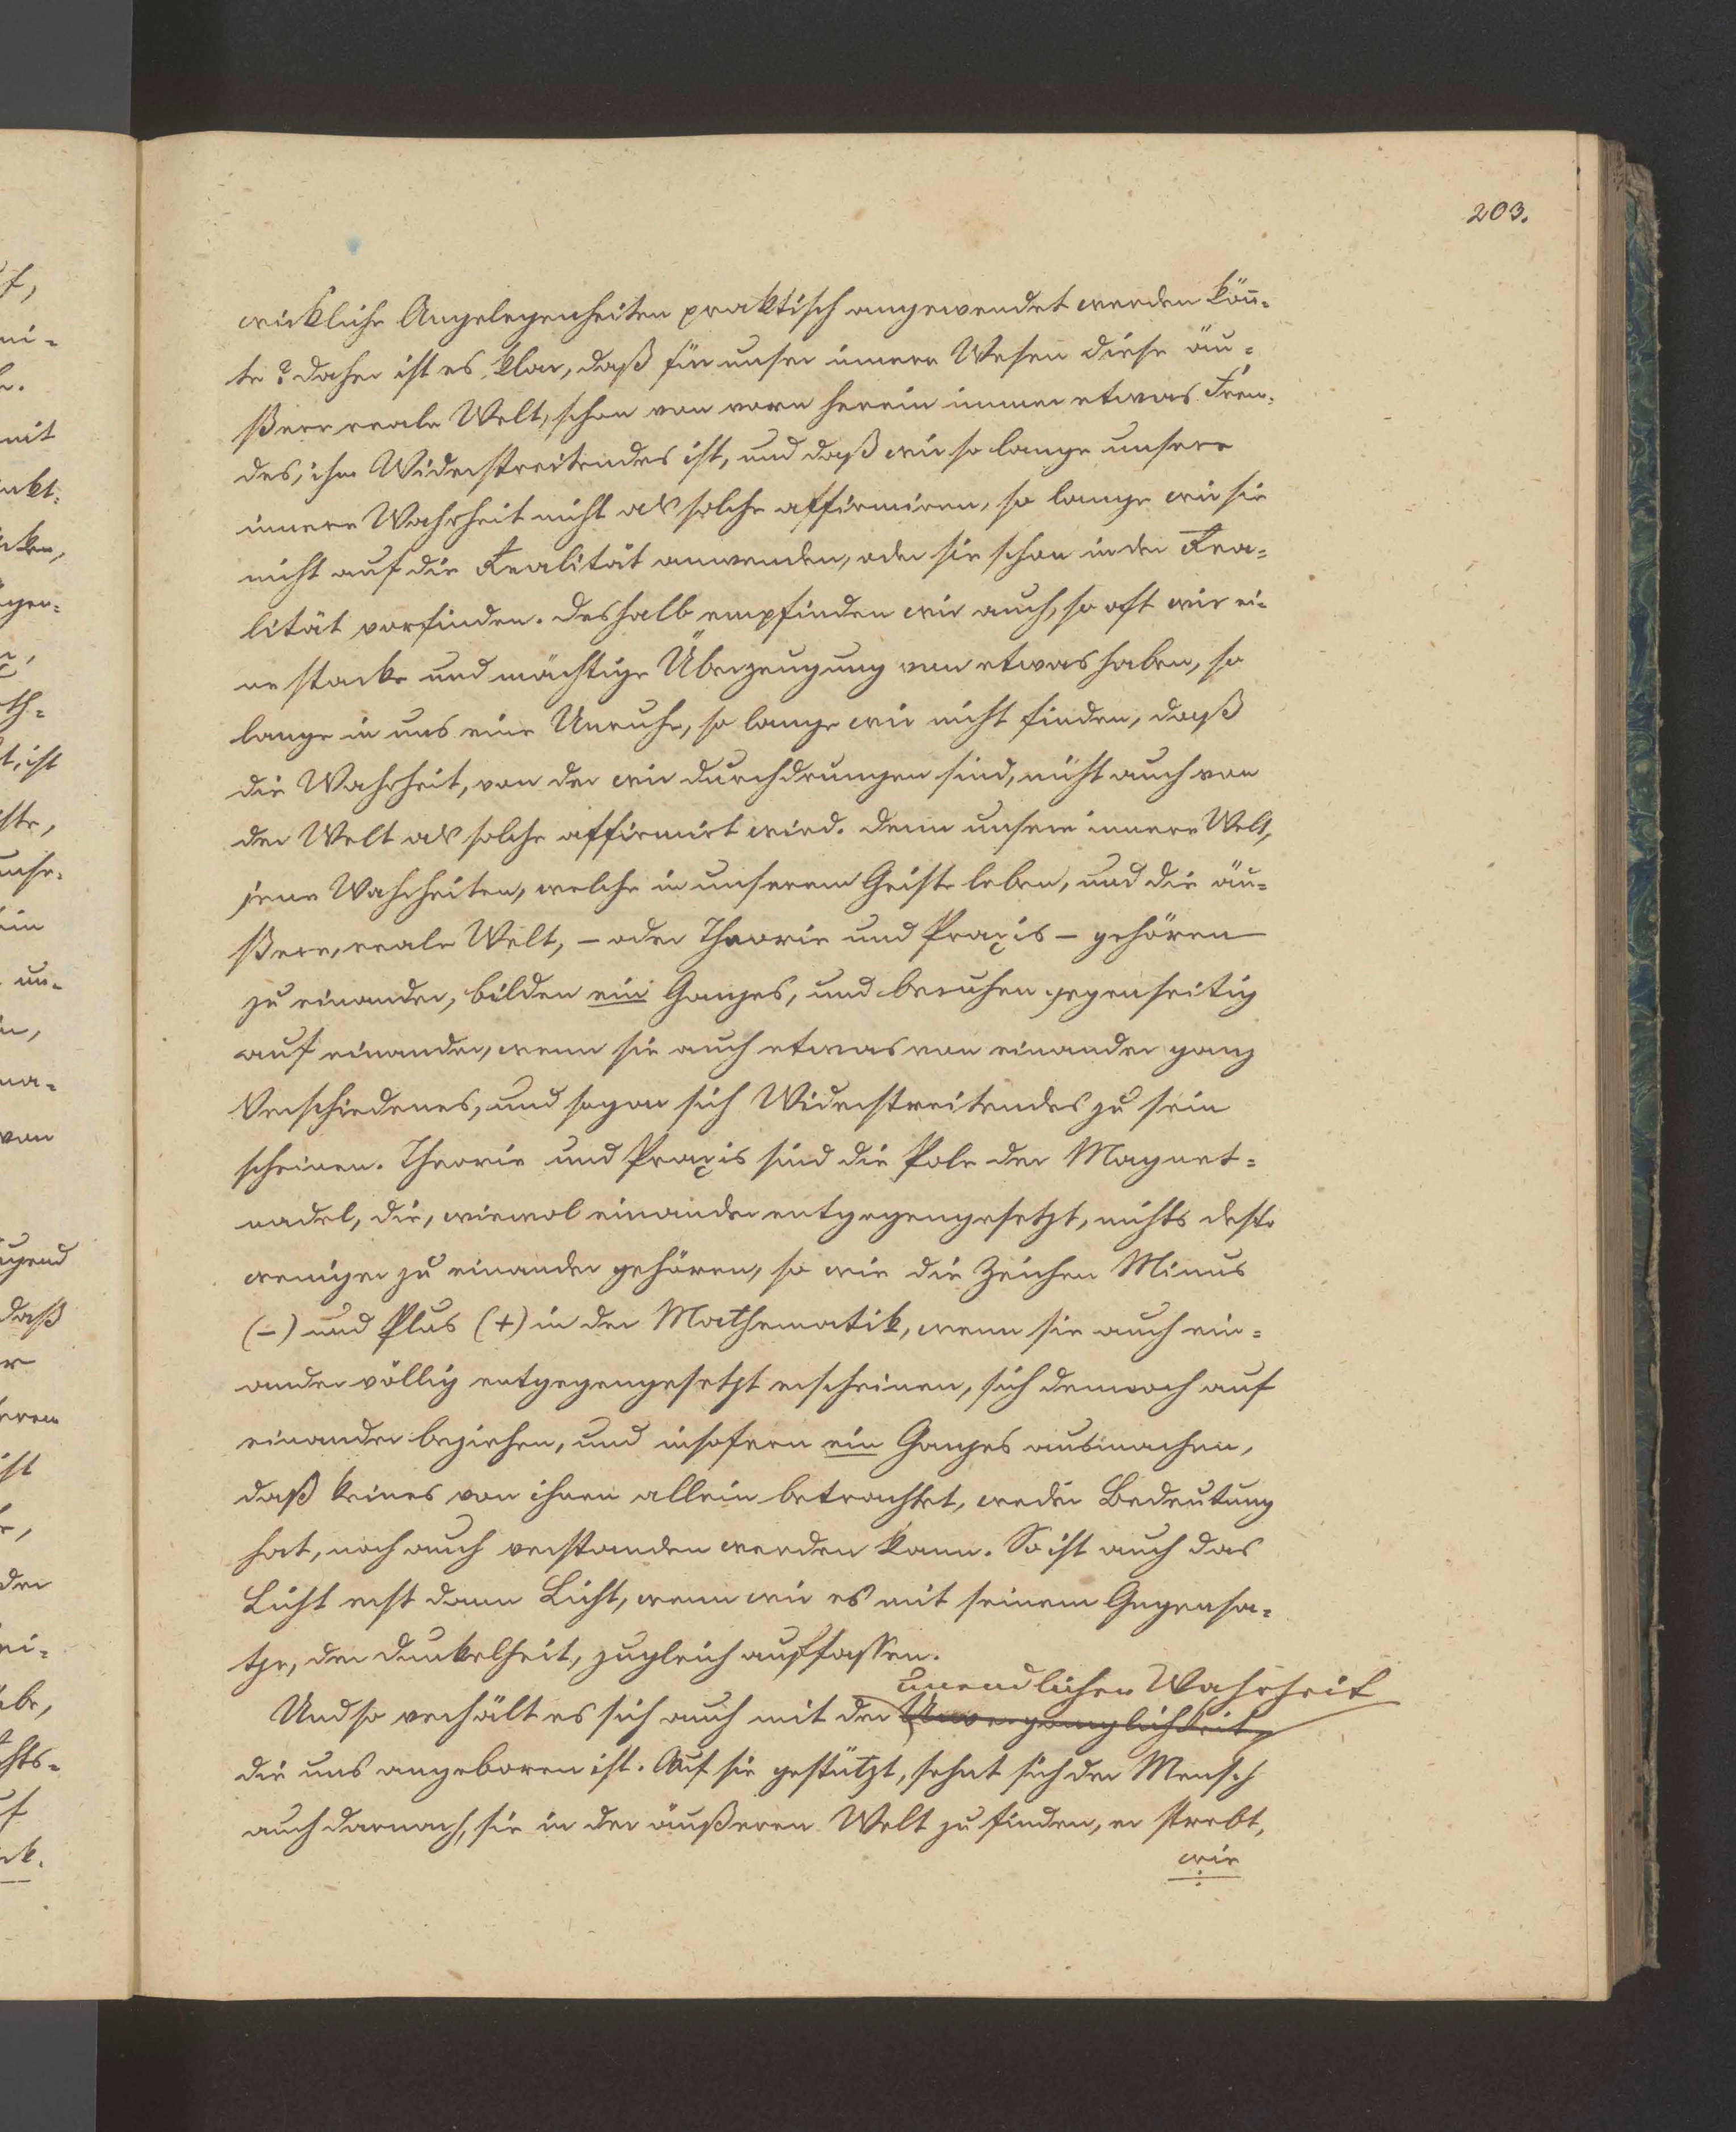 203.
wirkliche Angelegenheiten praktisch angewendet werden kön̄-
te? Daher ist es klar, daß für unser innere Wesen diese äu-
ßere reale Welt, schon von vorn herein immer etwas Frem-
des, ihm Widerstreitendes ist, und daß wir so lange unsere
innere Wahrheit nicht als solche affirmiren, so lange wir sie
nicht auf die Realität anwenden, oder sie schon in der Rea-
lität vorfinden. Deshalb empfinden wir auch, so oft wir ei-
ne starke und mächtige Überzeugung von etwas haben, so
lange in uns eine Unruhe, so lange wir nicht finden, daß
die Wahrheit, von der wir durchdrungen sind, nicht auch von
der Welt als solche affirmirt wird. Denn unsere innere Welt,
jene Wahrheiten, welche in unserem Geiste leben, und die äu-
ßere, reale Welt, – oder Theorie und Praxis – gehören
zu einander, bilden ein Ganzes, und beruhen gegenseitig
auf einander, wenn sie auch etwas von einander ganz
Verschiedenes, und sogar sich Widerstreitendes zu sein
scheinen. Theorie und Praxis sind die Pole der Magnet-
nadel, die, wiewol einander entgegengesetzt, nichts desto
weniger zu einander gehören, so wie die Zeichen Minus
(–) und Plus (+) in der Mathematik, wenn sie auch ein-
ander völlig entgegengesetzt erscheinen, sich dennoch auf
einander beziehen, und insofern ein Ganzes ausmachen,
daß keines von ihnen allein betrachtet, weder Bedeutung
hat, noch auch verstanden werden kann. So ist auch das
Licht erst dann Licht, wenn wir es mit seinem Gegensa-
tze, der Dunkelheit, zugleich auffassen.
unendlichen Wahrheit
Und so verhält es sich auch mit der Unvergänglichkeit,
die uns angeboren ist. Auf sie gestützt, sehnt sich der Mensch
auch darnach, sie in der äußeren Welt zu finden, er strebt,
wie